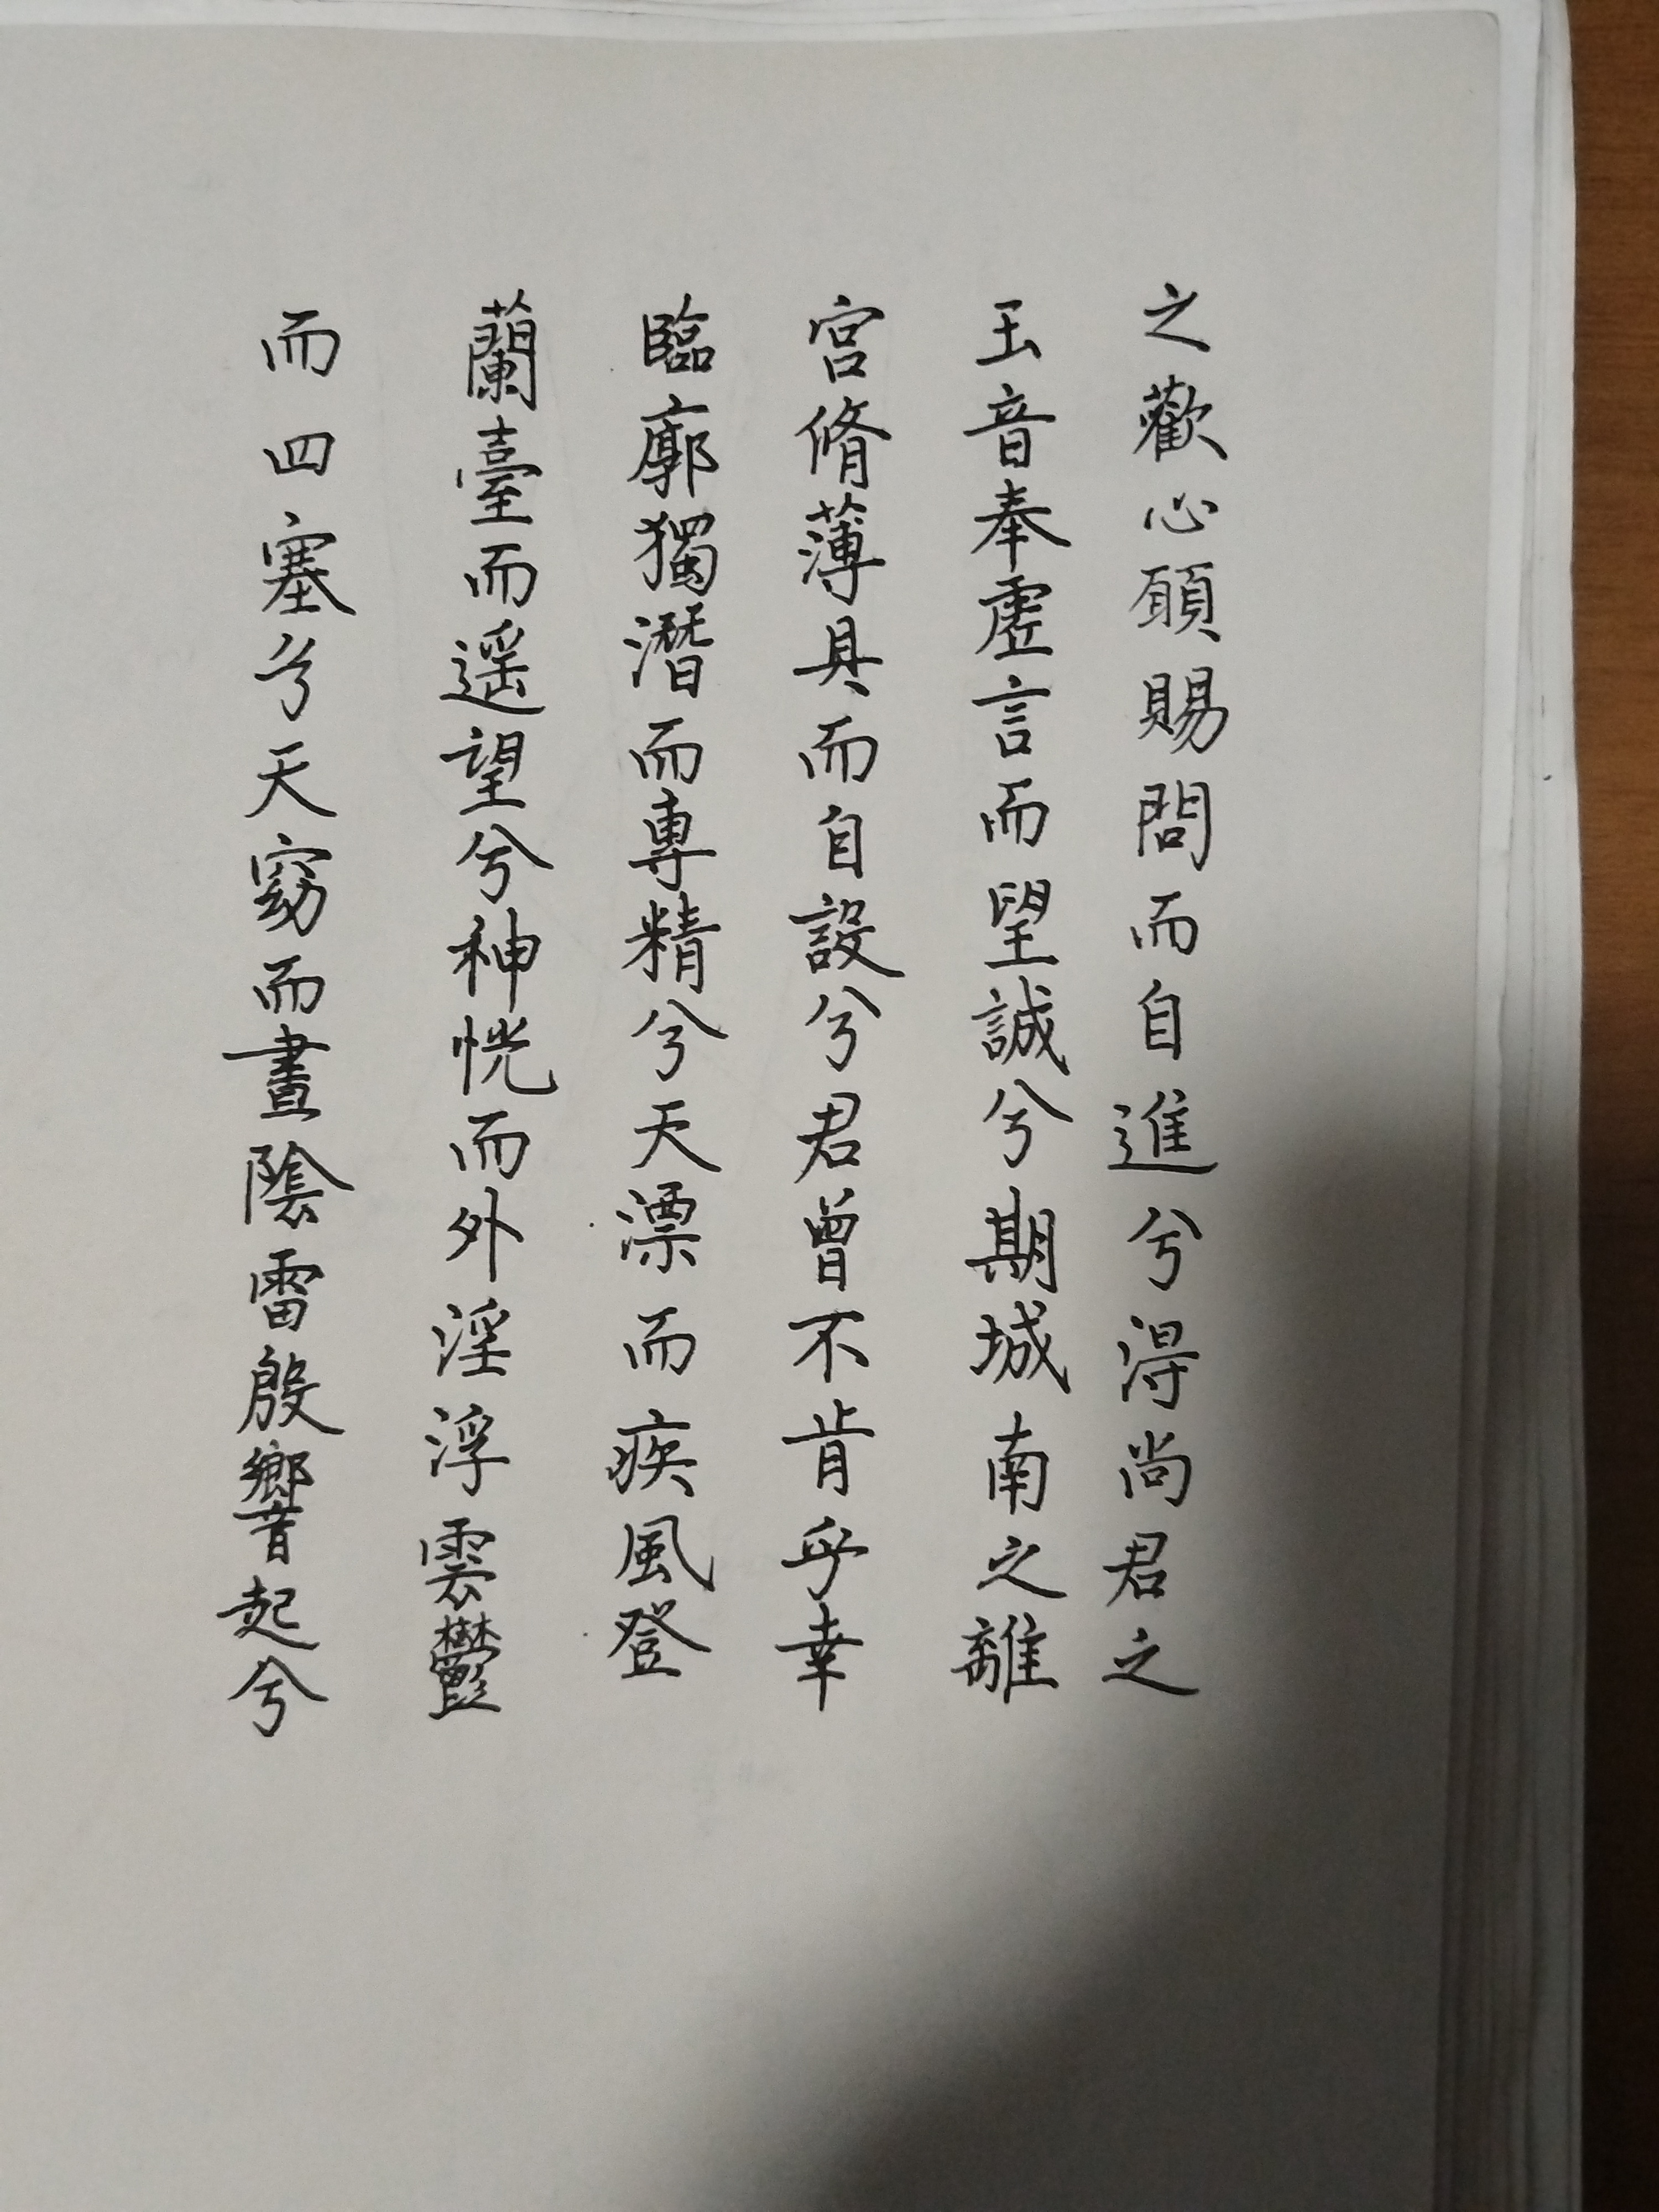 之歡心願賜問而自進兮得尚君之
玉音奉虛言而望誠兮期城南之離
宮脩薄具而自設兮君曾不肯乎幸
臨廓獨潛而專精兮天漂而疾風登
蘭臺而遥望兮神怳而外淫浮雲鬱
而四塞兮天窈而晝陰雷殷響起兮